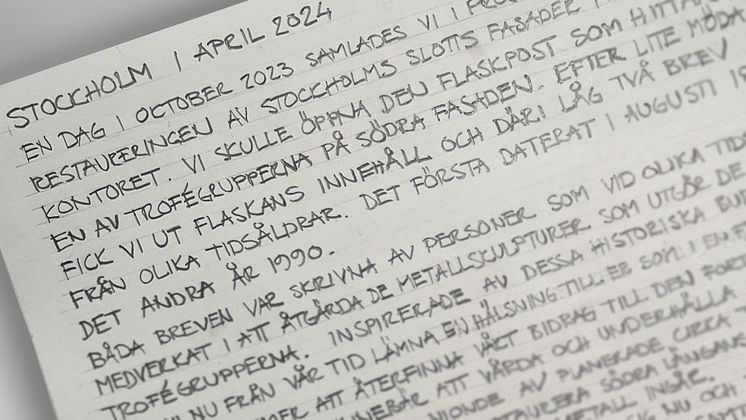 STOCKHOLM I APRIL 2024
EN DAG I OCTOBER 2023 SAMLADES VI I
RESTAURERINGEN AV STOCKHOLMS SLOTTS FASADER
KONTORET. VI SKULLE ÖPPNA DEN FLASKPOST SOM
EN AV TROFÉGRUPPERNA PÅ SÖDRA FASADEN. EFTER LITE MÖDA
FICK VI UT FLASKANS INNEHÅLL OCH DÄRI LÅG TVÅ BREV
FRÅN OLIKA TIDSÅLDRAR. DET FÖRSTA DATERAT I AUGUSTI
DET ANDRA ÅR 1990.
BÅDA BREVEN VAR SKRIVNA AV PERSONER SOM VID OLIKA
MEDVERKAT I ATT ÅTGÄRDA DE METALLSKULPTURER SOM UTGÖR DE
TROFÉGRUPPERNA. INSPIRERADE AV DESSA HISTORISKA
VI NU FRÅN VÅR TID LÄMNA EN HÄLSNING TILL ER SOM I EN
ATT ÅTERFINNA VÅRT BIDRAG TILL DEN
ATT VÅRDA OCH UNDERHÅLLA
AV PLANERADE CIRKA
SÖDRA LÄNGANS
METALL INGÅR.
NU OCH